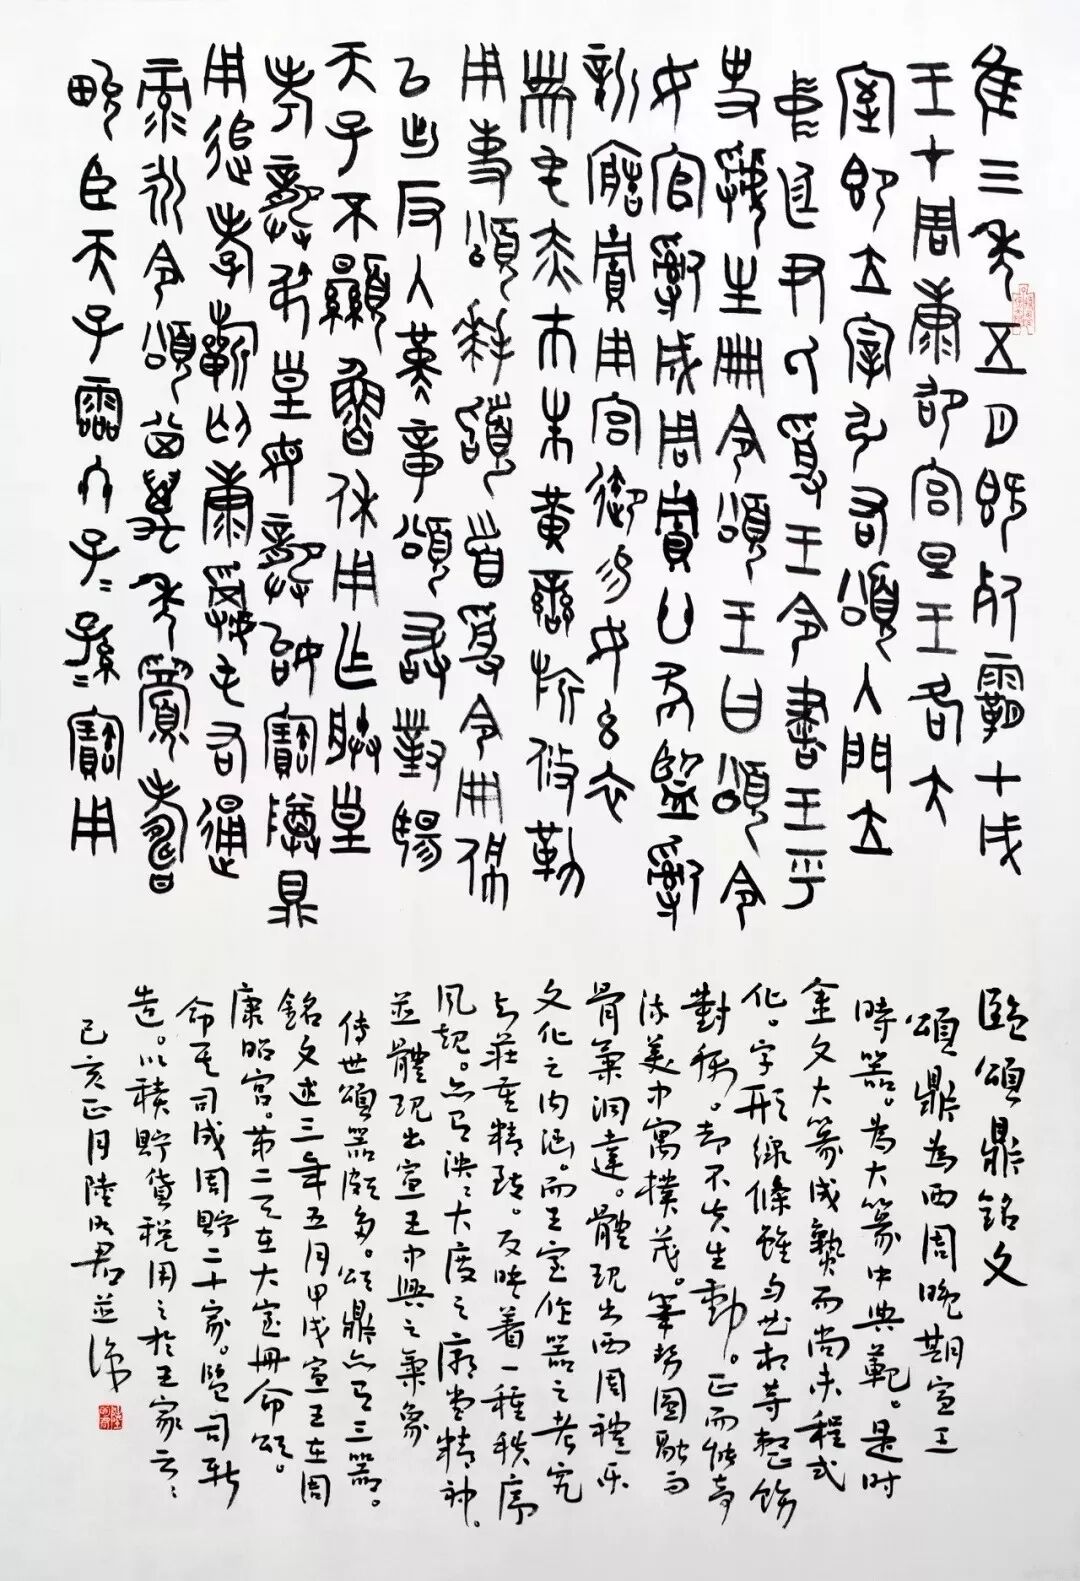 隹三年五月既死霸甲戌
王才周康卲宮旦王各大
室即立宰引右頌入門立
中廷尹氏受王令書王乎
史虢生冊令頌王曰頌令
女官𤔲成周貯廿家監𤔲
新造貯用宮御易女玄衣
黹屯赤巿朱黃鑾旂攸勒
用事頌拜𩒨首受令冊佩
㠯出反入堇章頌敢對揚
天子不顯魯休用乍朕皇
考龏弔皇母龏姒寶尊鼎
用追孝𣄨匃康𩁹屯右通
彔永令頌其萬年眉壽
畯臣天子霝冬子=孫=寶用
臨頌鼎銘文
頌鼎為西周晚期宣王
時器。為大篆中典範。是时
金文大篆成熟而尚未程式
化。字形線條雖勻相等整飭
對稱。却不失生動。正而能奇
流美中寓樸茂。筆势圓融而
骨氣洞達。體現出西周禮乐
文化之内涵。而王室作器之考究
与莊重精致。反映着一種秩序
風規。亦有泱泱大度之廟堂精神。
並體現出宣王中興之氣象
傳世頌器頗多。頌鼎亦有三器。
銘文述三年五月甲戌宣王在周
康昭宮。第二天在大室冊命頌。
命其司成周貯二十家。監司新
造。以積貯貨稅用之於王家云云
己亥正月陸明君並識